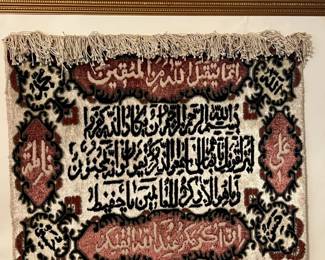 الله
محمد
انما يتقبل الله من المتقين
بسم الله الرحمن الرحيم وان يكاد الذين كفروا
ليزلقونك بابصارهم لما سمعوا الذكر ويقولون انه لمجنون
وما هو الا ذكر للعالمين
علي
فاطمة
ان اكرمكم عند الله اتقيكم